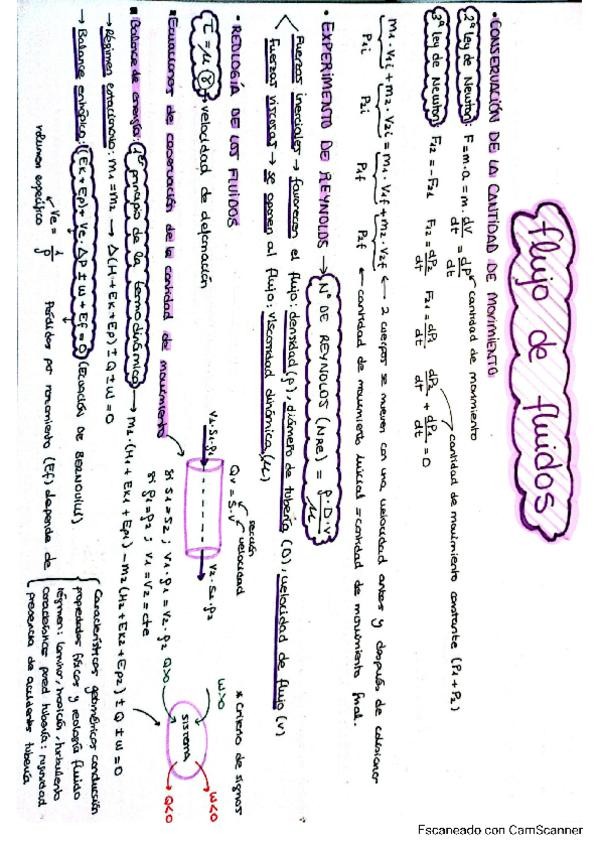 flujo de fluidos
• CONSERVACIÓN DE LA CANTIDAD DE MOVIMIENTO
2ª ley de Newton: F = m·a = m · dv/dt = dp cantidad de movimiento
3ª ley de Newton: F12 = -F21 F12 = dP2/dt F21 = dP1/dt dP2/dt + dP1/dt = 0
cantidad de movimiento constante (P1 + P2)
m1·V1i + m2·V2i = m1·V1f + m2·V2f ← 2 cuerpos se mueven con una velocidad antes y después de colisionar
P1i P2i P1f P2f ← cantidad de movimiento inicial = cantidad de movimiento final.
• EXPERIMENTO DE REYNOLDS → Nº DE REYNOLDS (NRE) = ρ·D·V/μ
Fuerzas inerciales → favorecen el flujo: densidad (ρ), diámetro de tubería (D), velocidad de flujo (v)
Fuerzas viscosas → se oponen al flujo: viscosidad dinámica (μ)
• REOLOGÍA DE LOS FLUIDOS
τ = μ γ → velocidad de deformación
Qv = S·V
sección
velocidad
V1·S1·ρ1
V2·S2·ρ2
* Criterio de signos
W>0
W<0
sistema
Q>0
Q<0
• Ecuaciones de conservación de la cantidad de movimiento
si S1 = S2 ; V1·ρ1 = V2·ρ2
si ρ1 = ρ2 ; V1 = V2 = cte
• Balance de energía: 1er principio de la termodinámica → m1·(H1 + Ek1 + Ep1) - m2(H2 + Ek2 + Ep2) ± Q ± W = 0
→ Régimen estacionario: m1 = m2 → Δ(H + Ek + Ep) ± Q ± W = 0
→ Balance entálpico: (Ek + Ep) + Ve·ΔP ± W + Ef = 0 (ECUACIÓN DE BERNOULLI)
Ve = 1/ρ
volumen específico
Pérdidas por rozamiento (Ef) depende de
Características geométricas conducción
propiedades físicas y reología fluido
régimen: laminar, transición, turbulento
características pared tubería: rugosidad
presencia de accidentes tubería
Escaneado con CamScanner